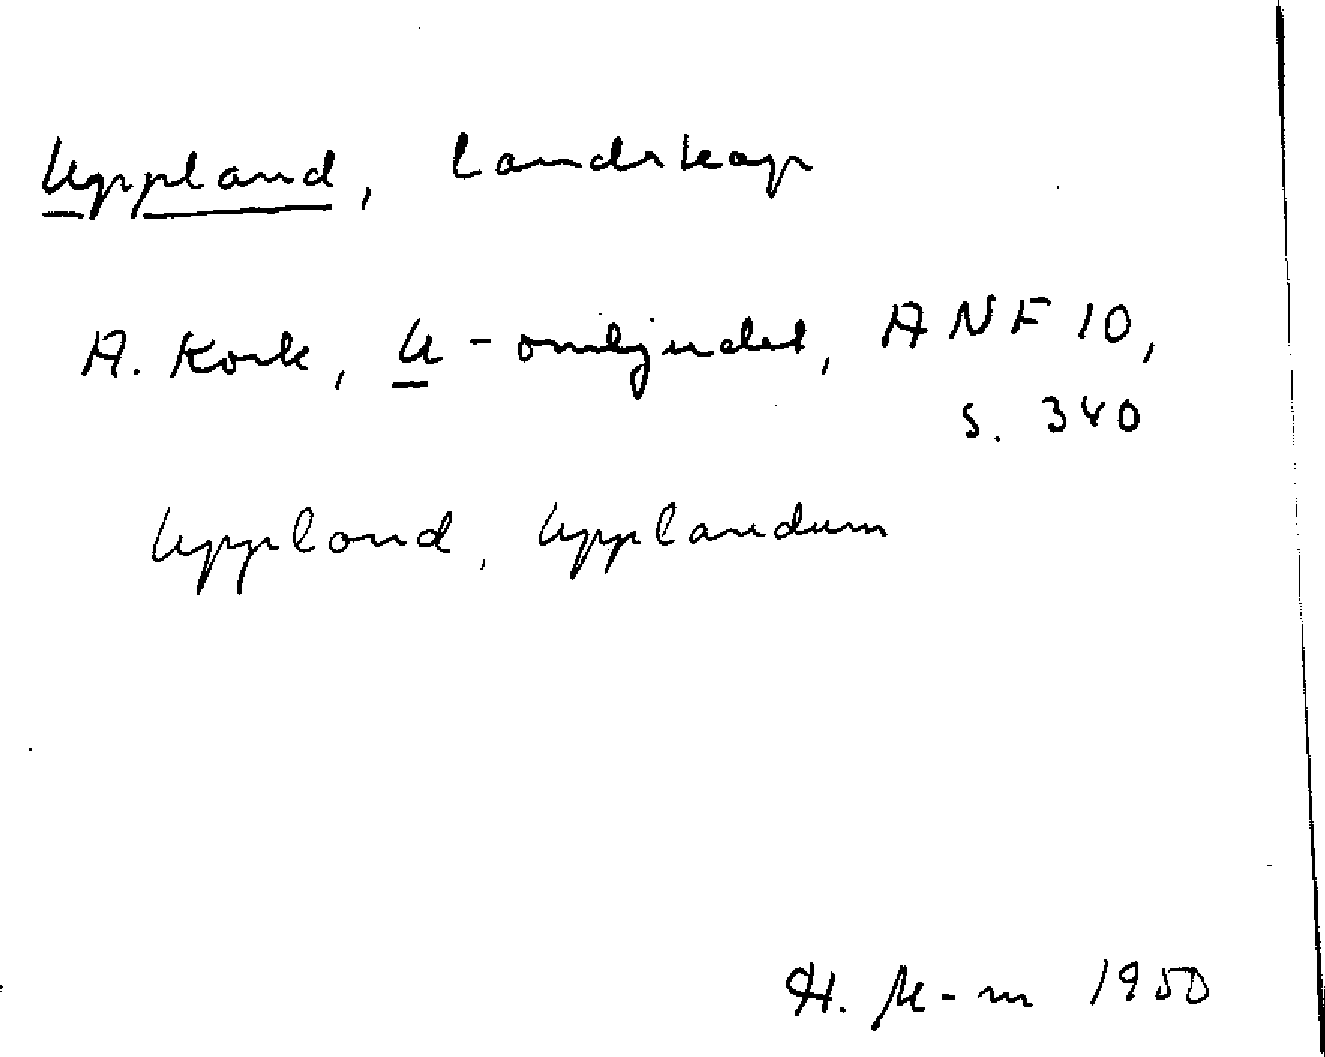 Uppland, Landskap
A. Kock, u-omljudet, ANF 10,
s. 340
Upplond, Upplandum
H. M-m 1950